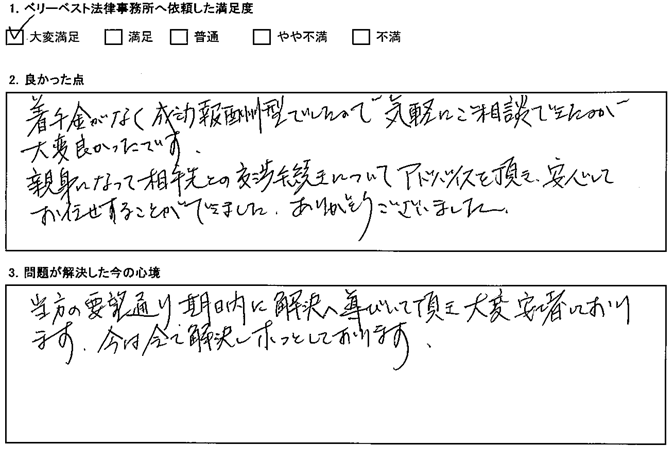 1. ベリーベスト法律事務所へ依頼した満足度
大変満足 満足 普通 やや不満 不満
2. 良かった点
着手金がなく成功報酬型でしたので気軽にご相談できたのが
大変良かったです。
親身になって相手先との交渉手続きについてアドバイスを頂き、安心して
お任せすることができました。ありがとうございました。
3. 問題が解決した今の心境
当方の要望通り期日内に解決へ導びいて頂き大変安堵しており
ます。今は全て解決しホッとしております。